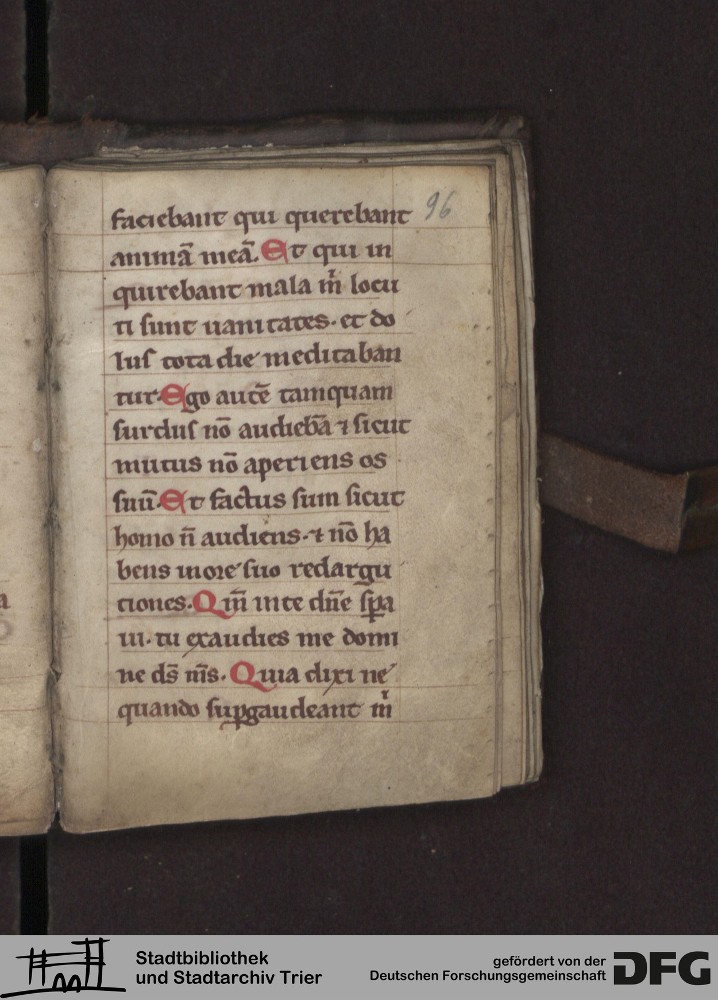 faciebant qui querebant 96
animā meā. Et qui in
quirebant mala m̄ locu
ti sunt uanitates. et do
lus tota die meditaban
tur. Ego autē tamquam
surdus nō audiebā ⁊ sicut
mutus nō aperiens os
suū. Et factus sum sicut
homo n̄ audiens. ⁊ nō ha
bens in ore suo redargu
tiones. Qm̄ in te dn̄e spa
ui. tu exaudies me domi
ne ds̄ ms̄. Quia dixi ne
quando supgaudeant m̄
a
Stadtbibliothek
und Stadtarchiv Trier
gefördert von der
Deutschen Forschungsgemeinschaft
DFG